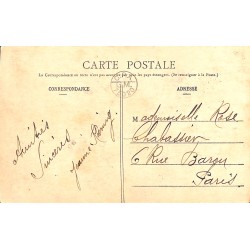 CARTE POSTALE
La Correspondance au recto n'est pas acceptée par tous les pays étrangers. (Se renseigner à la Poste.)
CORRESPONDANCE
ADRESSE
Amitiés
Sincères
Jeanne
Mademoiselle Rose
Chabassier
6 Rue Bargue
Paris